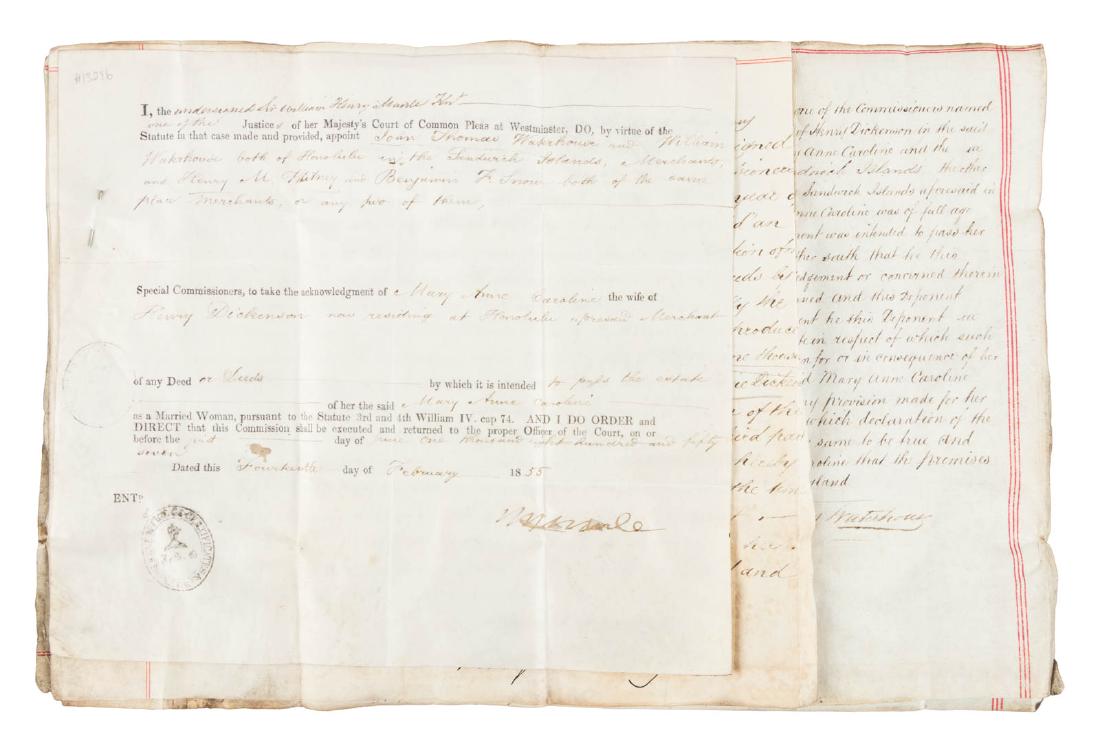 #13246
I, the undersigned Sir William Henry Maule Knt
one of the Justices of her Majesty's Court of Common Pleas at Westminster, DO, by virtue of the
Statute in that case made and provided, appoint John Thomas Waterhouse and William
Waterhouse both of Honolulu in the Sandwich Islands, Merchants,
and Henry M. Whitney and Benjamin F. Snow both of the same
place Merchants, or any two of them,
Special Commissioners, to take the acknowledgment of Mary Anne Caroline the wife of
Henry Dickenson now residing at Honolulu aforesaid Merchant
of any Deed or Deeds by which it is intended to pass the estate
of her the said Mary Anne Caroline
as a Married Woman, pursuant to the Statute 3rd and 4th William IV. cap 74. AND I DO ORDER and
DIRECT that this Commission shall be executed and returned to the proper Officer of the Court, on or
before the first day of June one thousand eight hundred and fifty
seven
Dated this Fourteenth day of February 1855
ENTD
W H Maule
signed
d an
tion of
eeds b
by the
produce
ic Dicke
e of the
hereby
the
land
one of the Commissioners named
of Henry Dickenson in the said
Anne Caroline and the
dwich Islands the other
Sandwich Islands aforesaid in
nne Caroline was of full age
ment was intended to pass her
the saith that he this
edgement or concerned therein
ned and this Deponent
ent he this Deponent
te in respect of which such
n for or in consequence of her
d Mary Anne Caroline
ny provision made for her
which declaration of the
same to be true and
roline that the premises
gland
Waterhouse